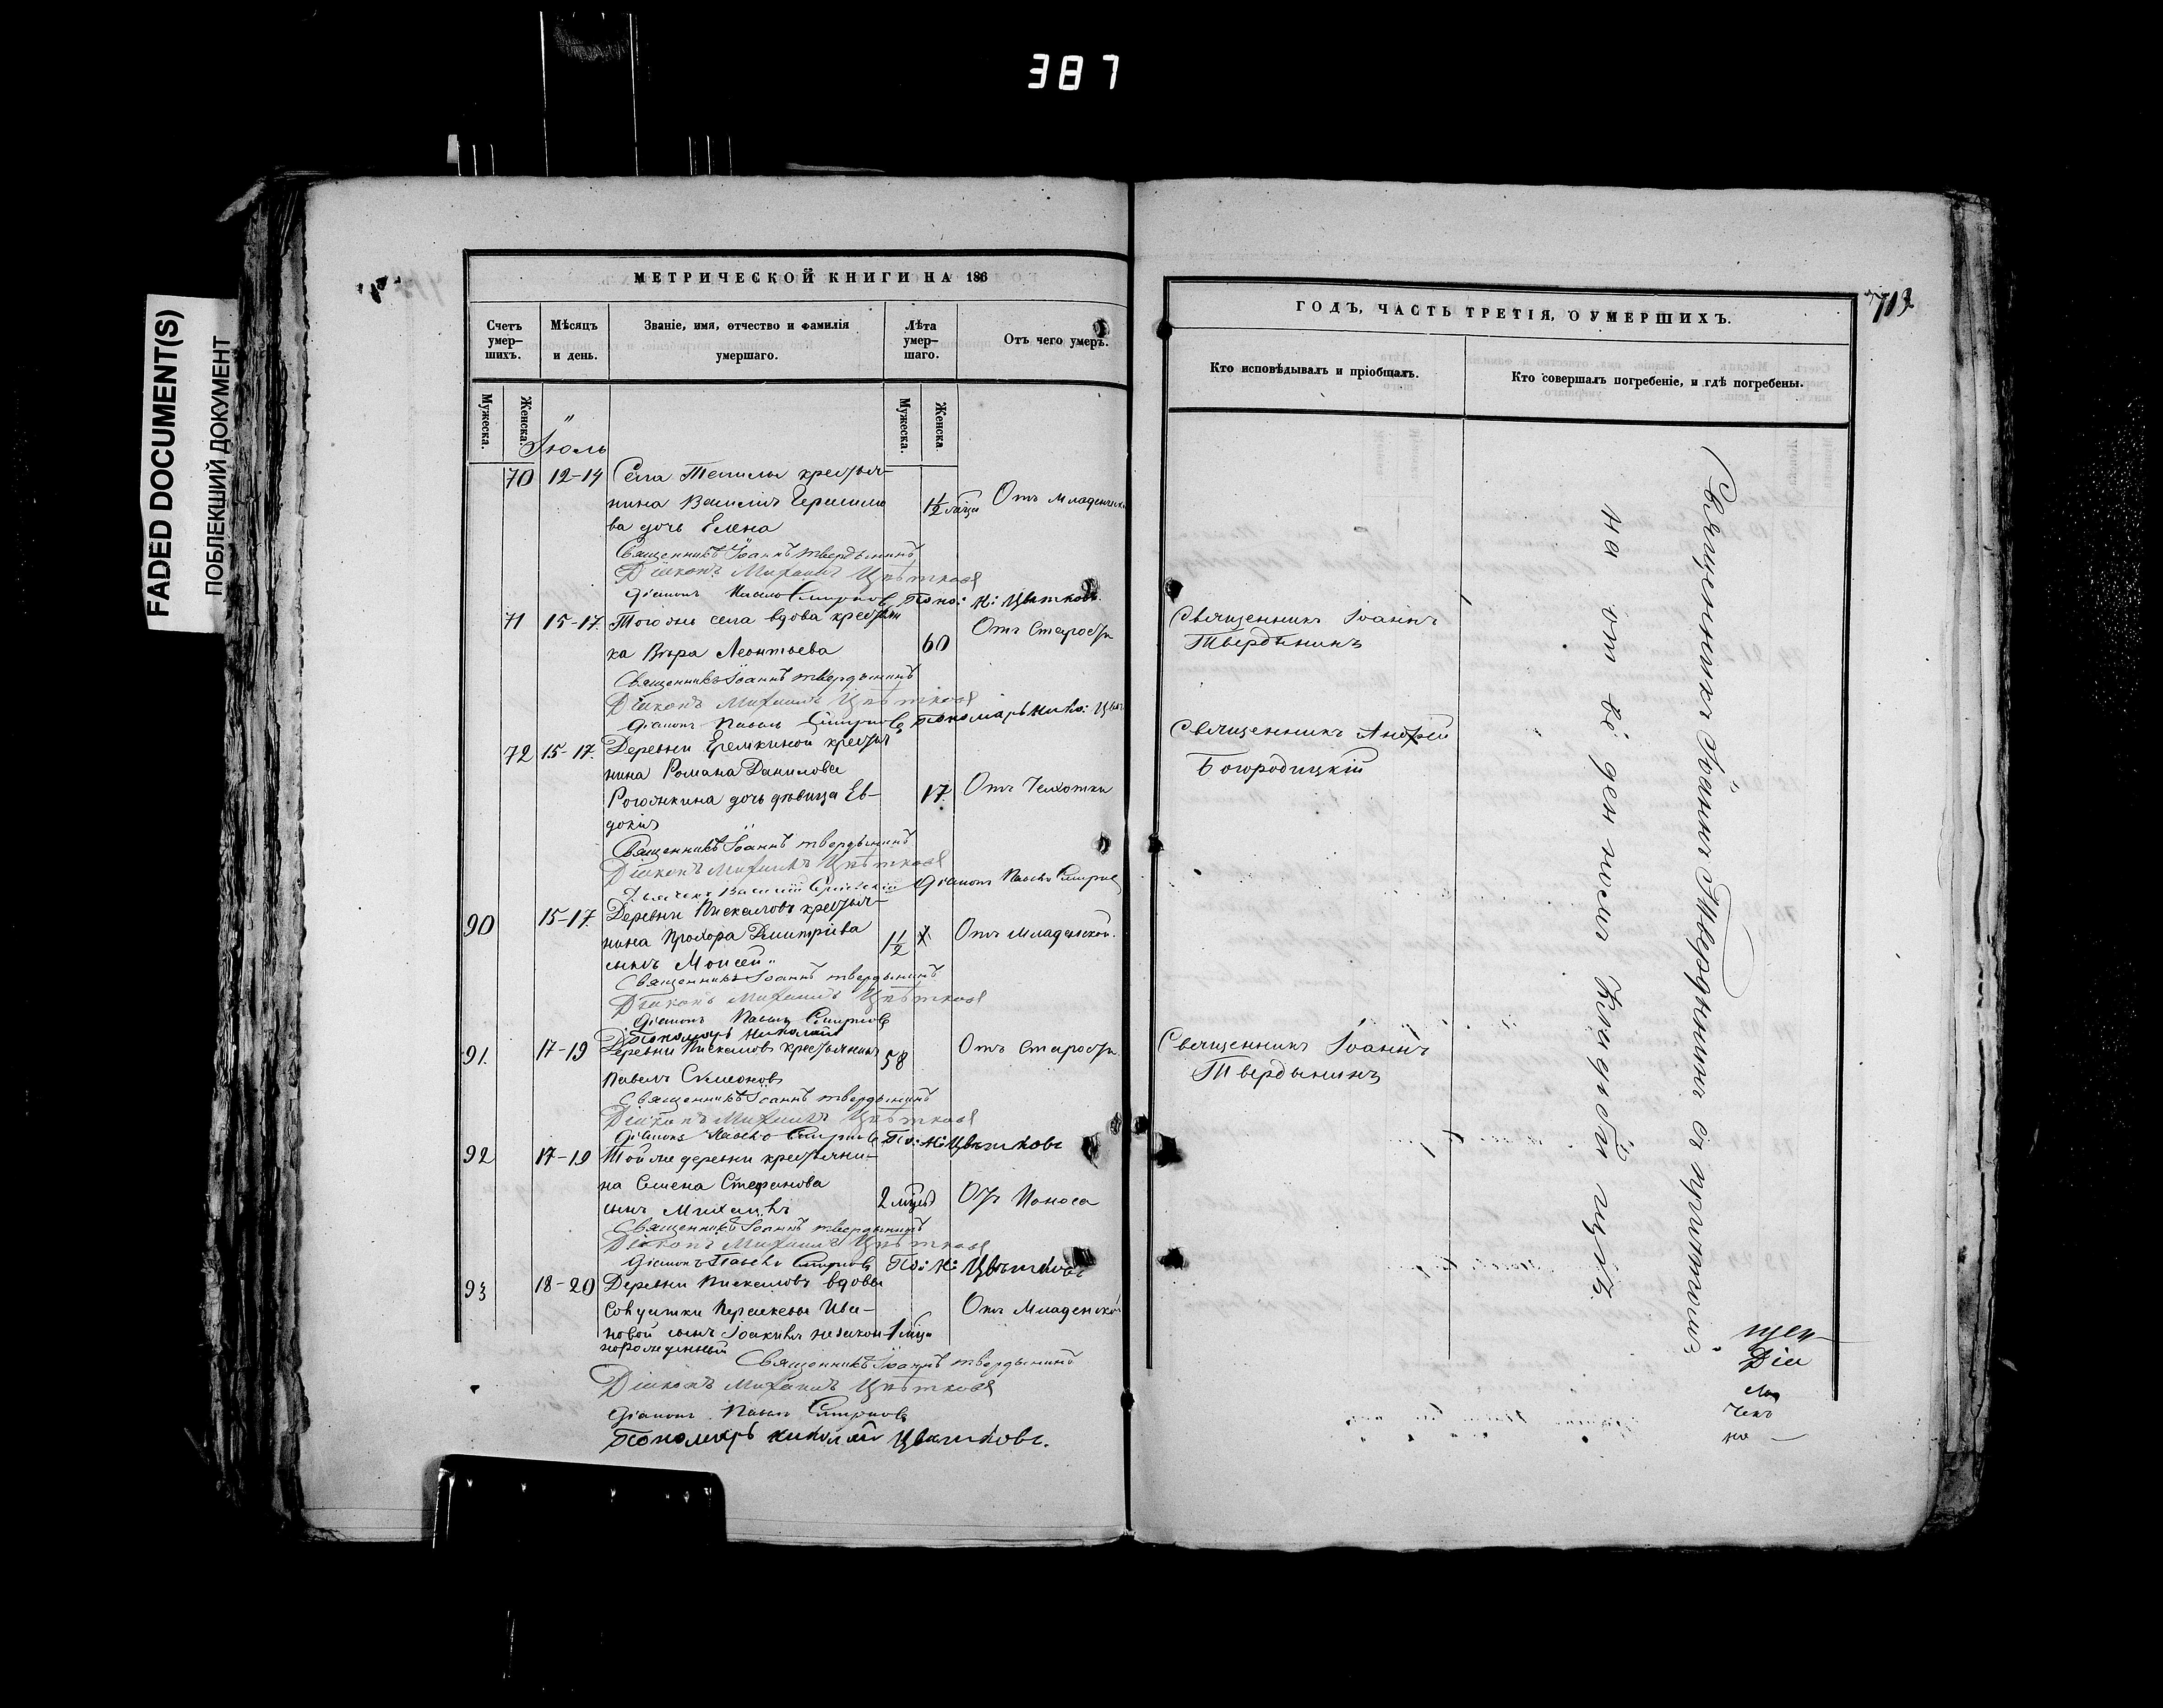 387
FADED DOCUMENT(S)
ПОБЛЕКШИЙ ДОКУМЕНТ
МЕТРИЧЕСКОЙ КНИГИ НА 186
Счетъ умер-шихъ.
Мѣсяцъ и день.
Званіе, имя, отчество и фамилія умершаго.
Лѣта умер-шаго.
Отъ чего умеръ.
Мужеска.
Женска.
Мужеска.
Женска.
Іюль
70 12-14 Села Теnилы крестья-
нина Василія Герасимо
ва дочь Елена 1½ Отъ младенческ
Священникъ Іоаннъ Твердынинъ
Діаконъ Михаилъ Цвѣтковъ
Діачокъ Павелъ Смирновъ Поно: Н: Цвѣтковъ
71 15-17. Тогожъ села вдова крестьян
ка Вѣра Леонтьева 60 Отъ Старости
Священникъ Іоаннъ Твердынинъ
Діаконъ Михаилъ Цвѣтковъ
Діачокъ Павелъ Смирновъ Пономарь Нико: Цвѣт
72 15-17. Деревни Еремкиной крестья
нина Романа Данилова
Рогожкина дочь дѣвица Ев- 17. Отъ Чехотки
докія
Священникъ Іоаннъ Твердынинъ
Діаконъ Михаилъ Цвѣтковъ
Василій Діачокъ Павелъ Смирнов
90 15-17. Деревни Пискаловъ крестья-
нина Прохора Дмитріева 1½ Отъ младенской.
сынъ Моисей
Священникъ Іоаннъ Твердынинъ
Діаконъ Михаилъ Цвѣтковъ
Діачокъ Павелъ Смирновъ
Пономарь Николай
91. 17-19 Деревни Пискаловъ крестьянинъ 58 Отъ старости.
Павелъ Симеоновъ
Священникъ Іоаннъ Твердынинъ
Діаконъ Михаилъ Цвѣтковъ
Діачокъ Павелъ Смирновъ По: Н: Цвѣтковъ
92 17-19 Той же деревни крестьяни-
на Семена Стефанова
сынъ Михаилъ 2 Отъ Поноса
Священникъ Іоаннъ Твердынинъ
Діаконъ Михаилъ Цвѣтковъ
Діачокъ Павелъ Смирновъ По: Н: Цвѣтковъ
93 18-20 Деревни Пискаловъ вдовы
солдатки Параскевы Ива- Отъ Младенской
новой сынъ Іоакимъ незакон- 1
норожденный
Священникъ Іоаннъ Твердынинъ
Діаконъ Михаилъ Цвѣтковъ
Діачокъ Павелъ Смирновъ
Пономарь Николай Цвѣтковъ.
713
ГОДЪ, ЧАСТЬ ТРЕТІЯ, О УМЕРШИХЪ.
Кто исповѣдывалъ и пріобщалъ.
Кто совершалъ погребеніе, и гдѣ погребены.
Священникъ Іоаннъ
Твердынинъ
Священникъ Андрей
Богородицкій
Священникъ Іоаннъ
Твердынинъ
Священникъ Іоаннъ Твердынинъ съ причтомъ
на
щен
Діа